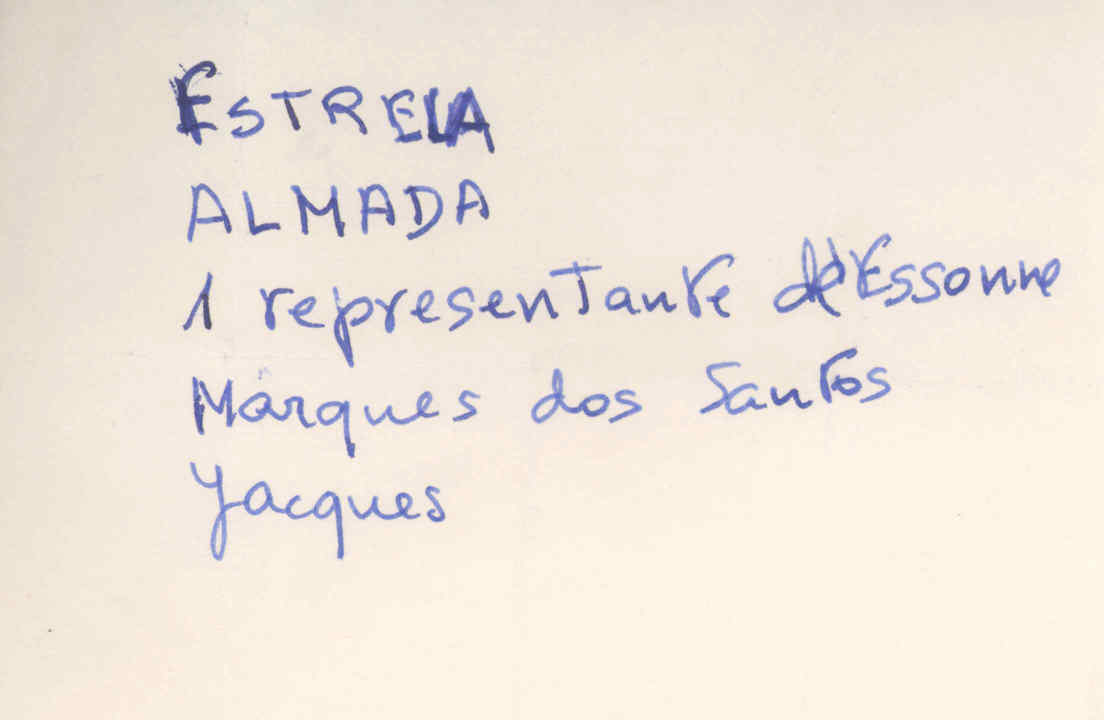 ESTRELA
ALMADA
1 representante d'Essonne
Marques dos Santos
Jacques